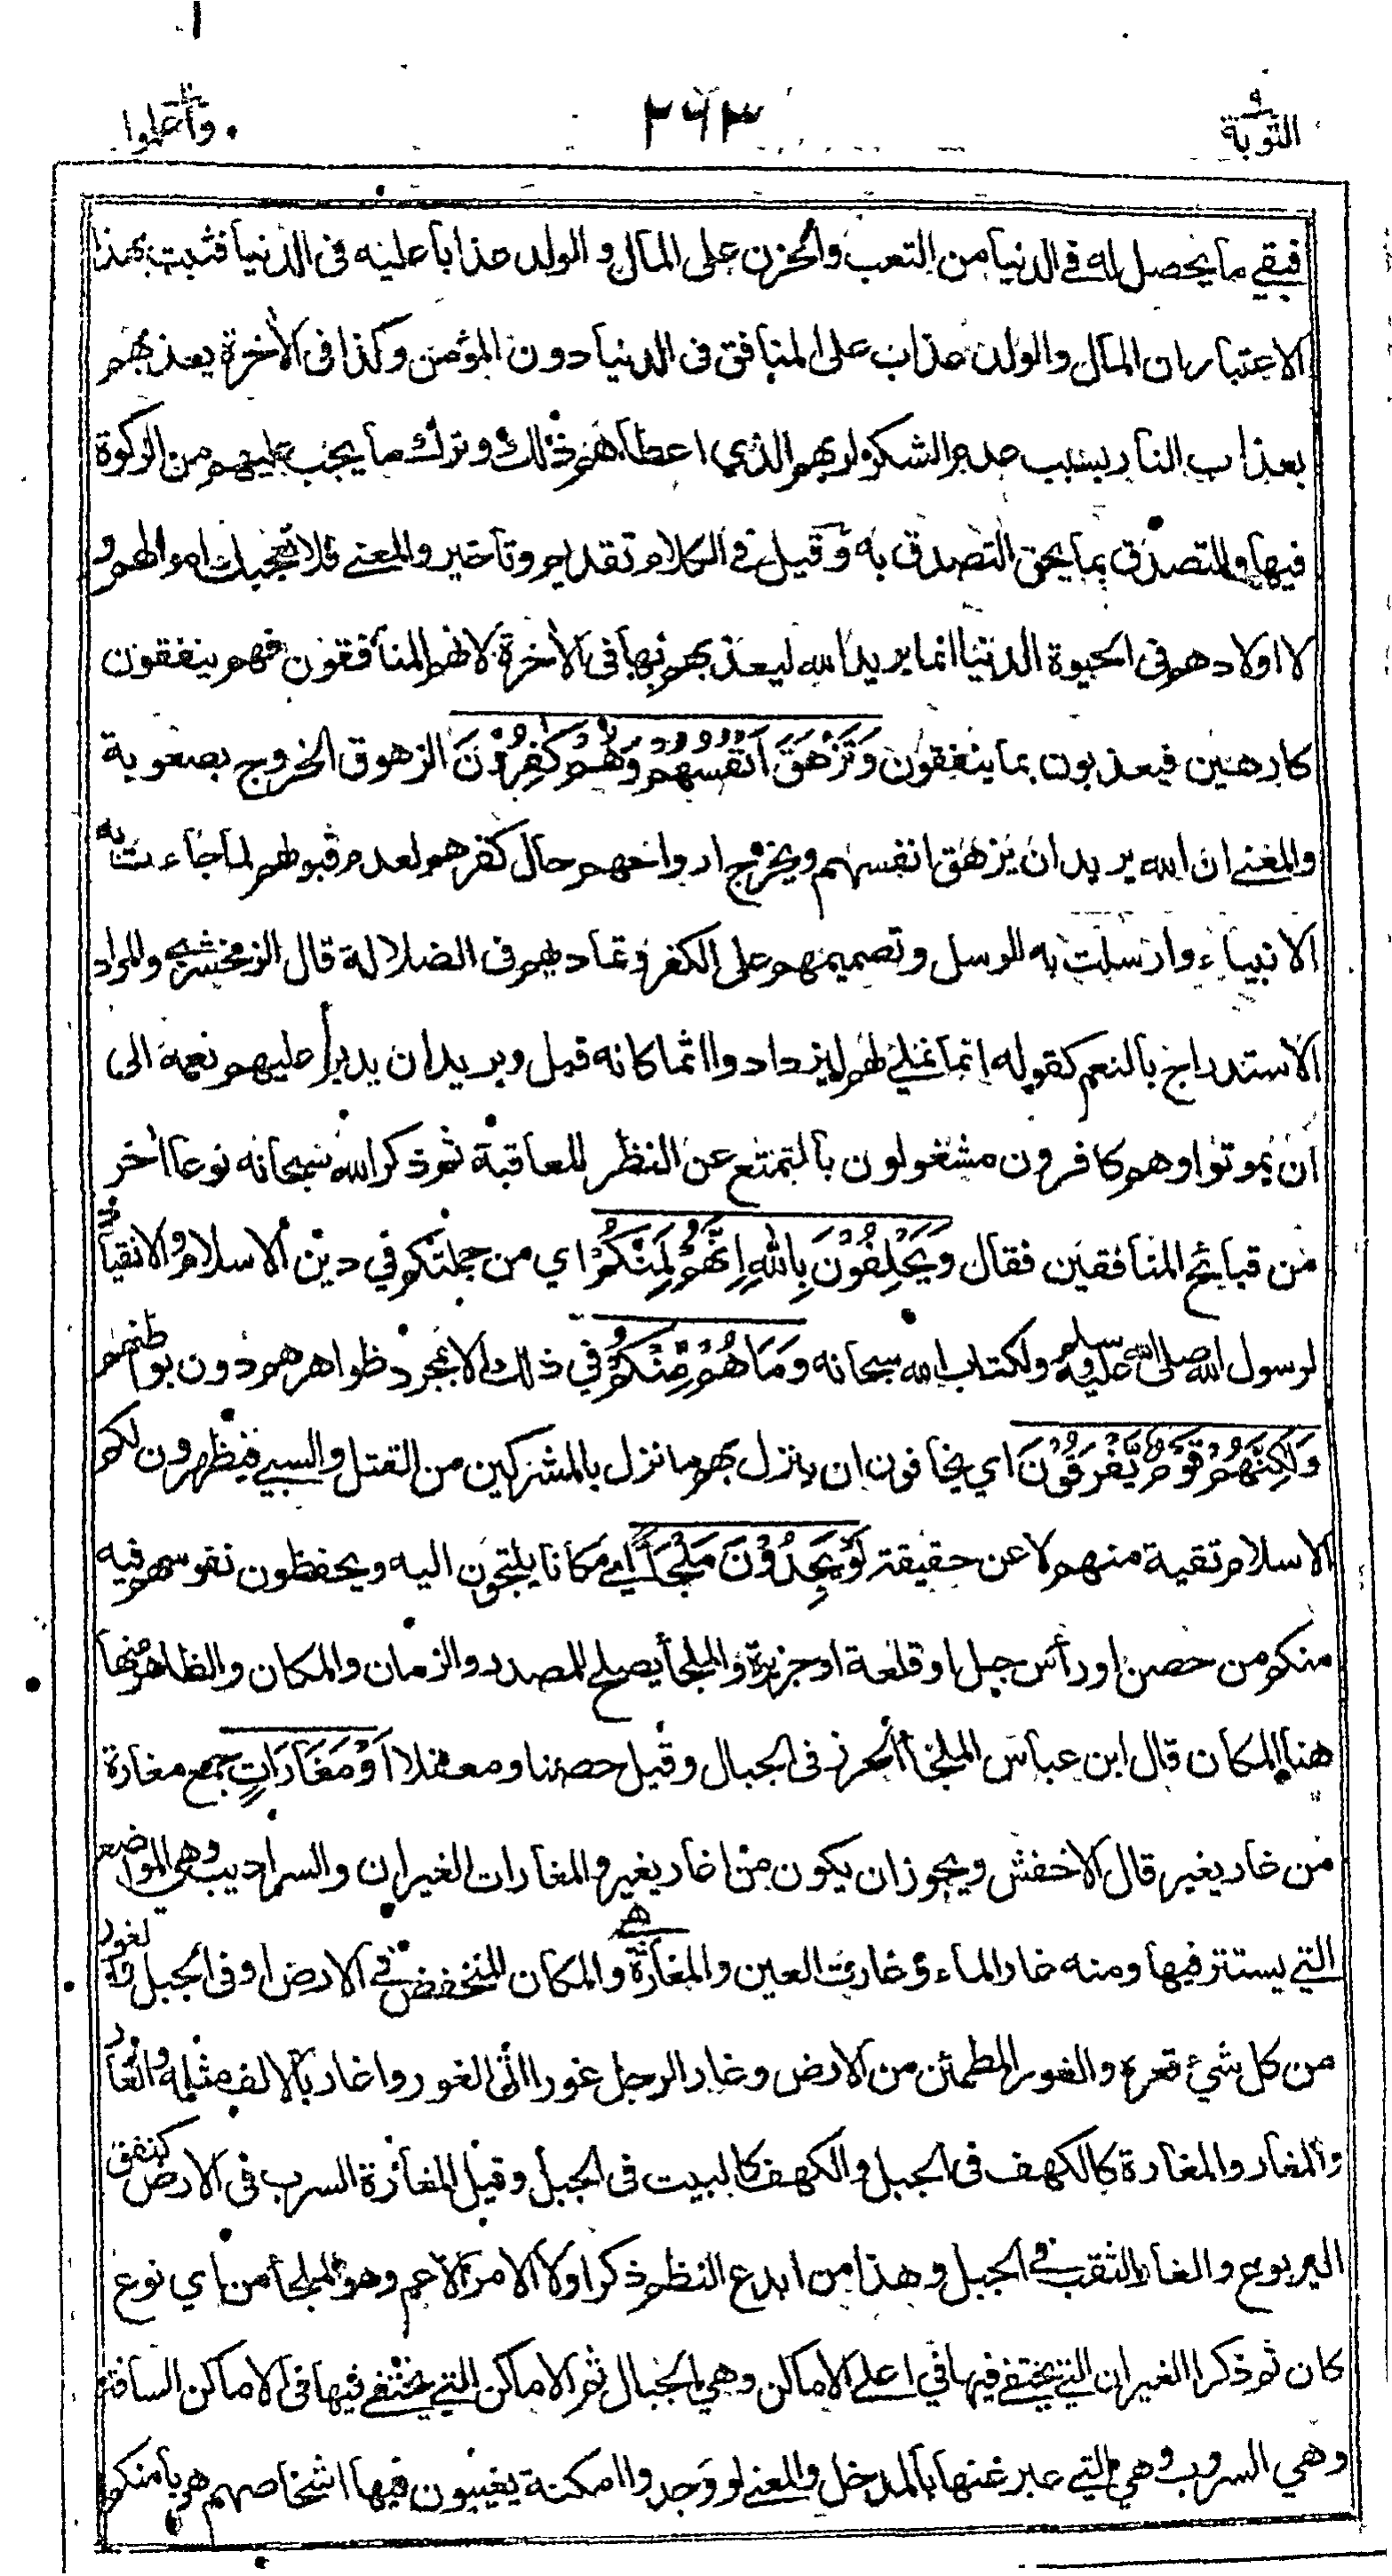 التوبة ٩
٢٦٣
واعلموا
فبقي ما يحصل له في الدنيا من التعب والحزن على المال والولد عذابا عليه في الدنيا فثبت بهذا
الاعتبار ان المال والولد عذاب على المنافق في الدنيا دون المؤمن وكذا في الأخرة يعذبهم
بعذاب النار بسبب عدم الشكر لربهم الذي اعطاهم ذلك وترك ما يجب عليهم من الزكوة
فيها والتصدق بما يحق التصدق به وقيل في الكلام تقديم وتأخير والمعنى فلا تعجبك اموالهم و
لا اولادهم في الحيوة الدنيا انما يريد الله ليعذبهم بها في الأخرة لانهم المنافقون فهم ينفقون
كارهين فيعذبون بما ينفقون وَتَزْهَقَ اَنْفُسُهُمْ وَهُمْ كٰفِرُوْنَ الزهوق الخروج بصعوبة
والمعنى ان الله يريد ان يزهق انفسهم ويخرج ارواحهم حال كفرهم لعدم قبولهم لما جاءت به
الانبياء وارسلت به الرسل وتصميمهم على الكفر وتماديهم في الضلالة قال الزمخشري والمراد
الاستدراج بالنعم كقوله انما نملي لهم ليزدادوا اثما كانه قيل ويريد ان يديرأ عليهم نعمة الى
ان يموتوا وهم كافرون مشغولون بالتمتع عن النظر للعاقبة ثم ذكر الله سبحانه نوعا أخر
من قبائح المنافقين فقال وَيَحْلِفُوْنَ بِاللهِ اِنَّهُمْ لَمِنْكُمْ اي من جملتكم في دين الاسلام والانقياد
لرسول الله صلى الله عليه وسلم ولكتاب الله سبحانه وَمَا هُمْ مِّنْكُمْ في ذلك الا بمجرد ظواهرهم دون بواطنهم
وَلٰكِنَّهُمْ قَوْمٌ يَّفْرَقُوْنَ اي يخافون ان ينزل بهم ما نزل بالمشركين من القتل والسبي فيظهرون لكم
الاسلام تقية منهم لا عن حقيقة لَوْ يَجِدُوْنَ مَلْجَأً اي مكانا يلتجؤن اليه ويحفظون نفوسهم فيه
منكم من حصن او رأس جبل او قلعة او جزيرة والملجأ يصلح للمصدر والزمان والمكان والظاهر منها
هنا المكان قال ابن عباس الملجأ الحرز في الجبال وقيل حصنا ومعقلا اَوْ مَغَارَاتٍ جمع مغارة
من غار يغير قال الاخفش ويجوز ان يكون من اغار يغير والمغارات الغيران والسراديب وهي المواضع
التي يستتر فيها ومنه غار الماء وغارت العين والمغارة هي والمكان المنخفض في الارض او في الجبل والغور
من كل شيء قعره والغور المطمئن من الارض وغار الرجل غورا اتى الغور واغار بالالف مثله والغار
والمغار والمغارة كالكهف في الجبل والكهف كالبيت في الجبل وقيل المغارة السرب في الارض كنفق
اليربوع والغار الثقب في الجبل وهذا من ابدع النظم ذكر اولا الامر الاعم وهو الملجأ من اي نوع
كان ثم ذكر الغيران التي يختفى فيها في اعلى الاماكن وهي الجبال ثم الاماكن التي يختفى فيها في الاماكن السافلة
وهي السروب وهي التي عبر عنها بالمدخل والمعنى لو وجدوا امكنة يغيبون فيها اشخاصهم هربا منكم